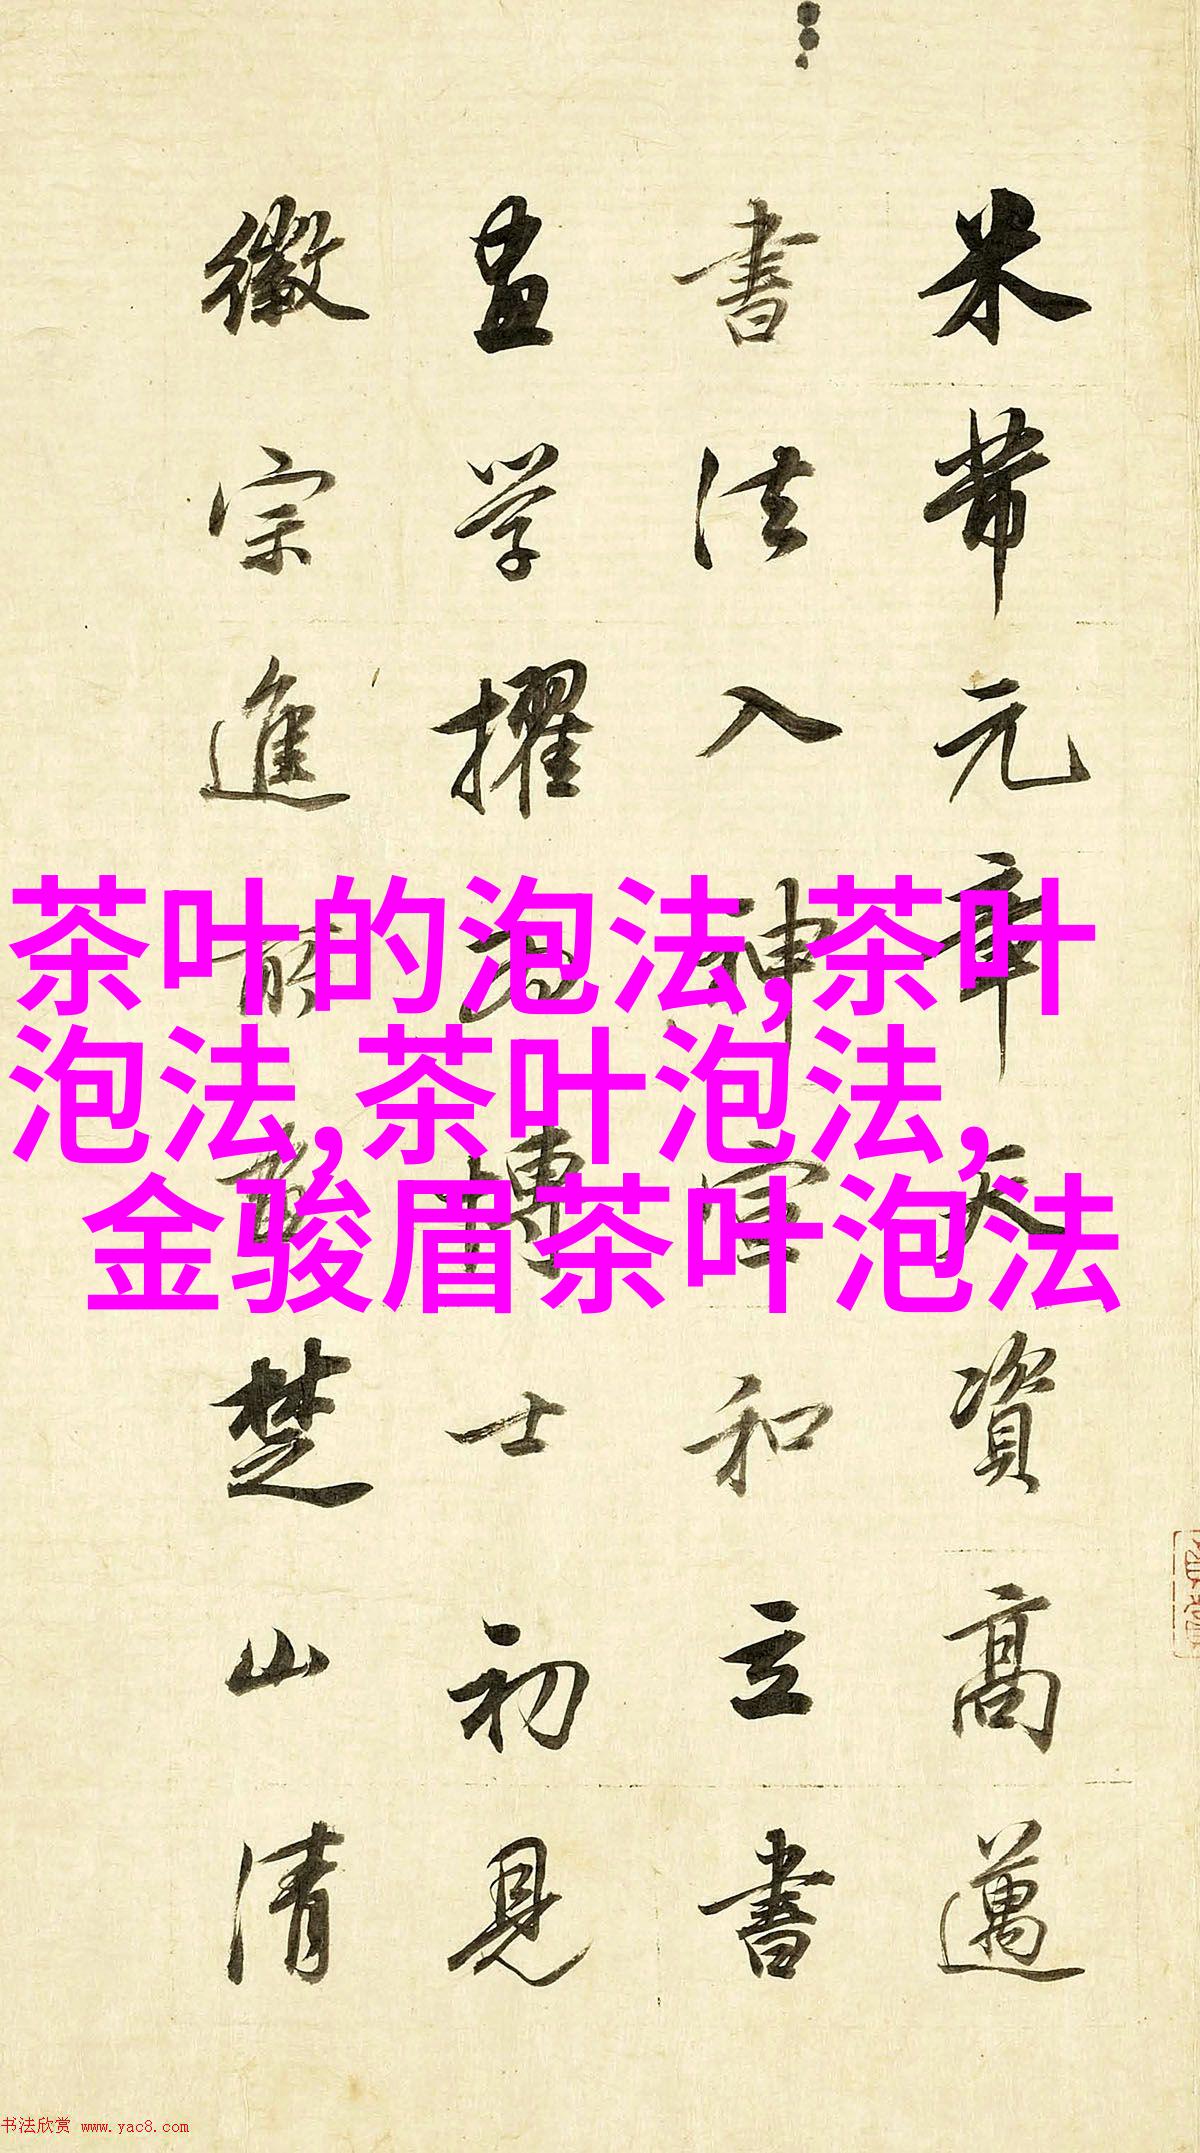 米芾元章天資高邁
書法入神宣和立書
畫学擢為博士初見
徽宗進所畫楚山清
茶叶的泡法,茶叶
泡法,茶叶泡法,
金骏眉茶叶泡法
书法欣赏 www.yac8.com